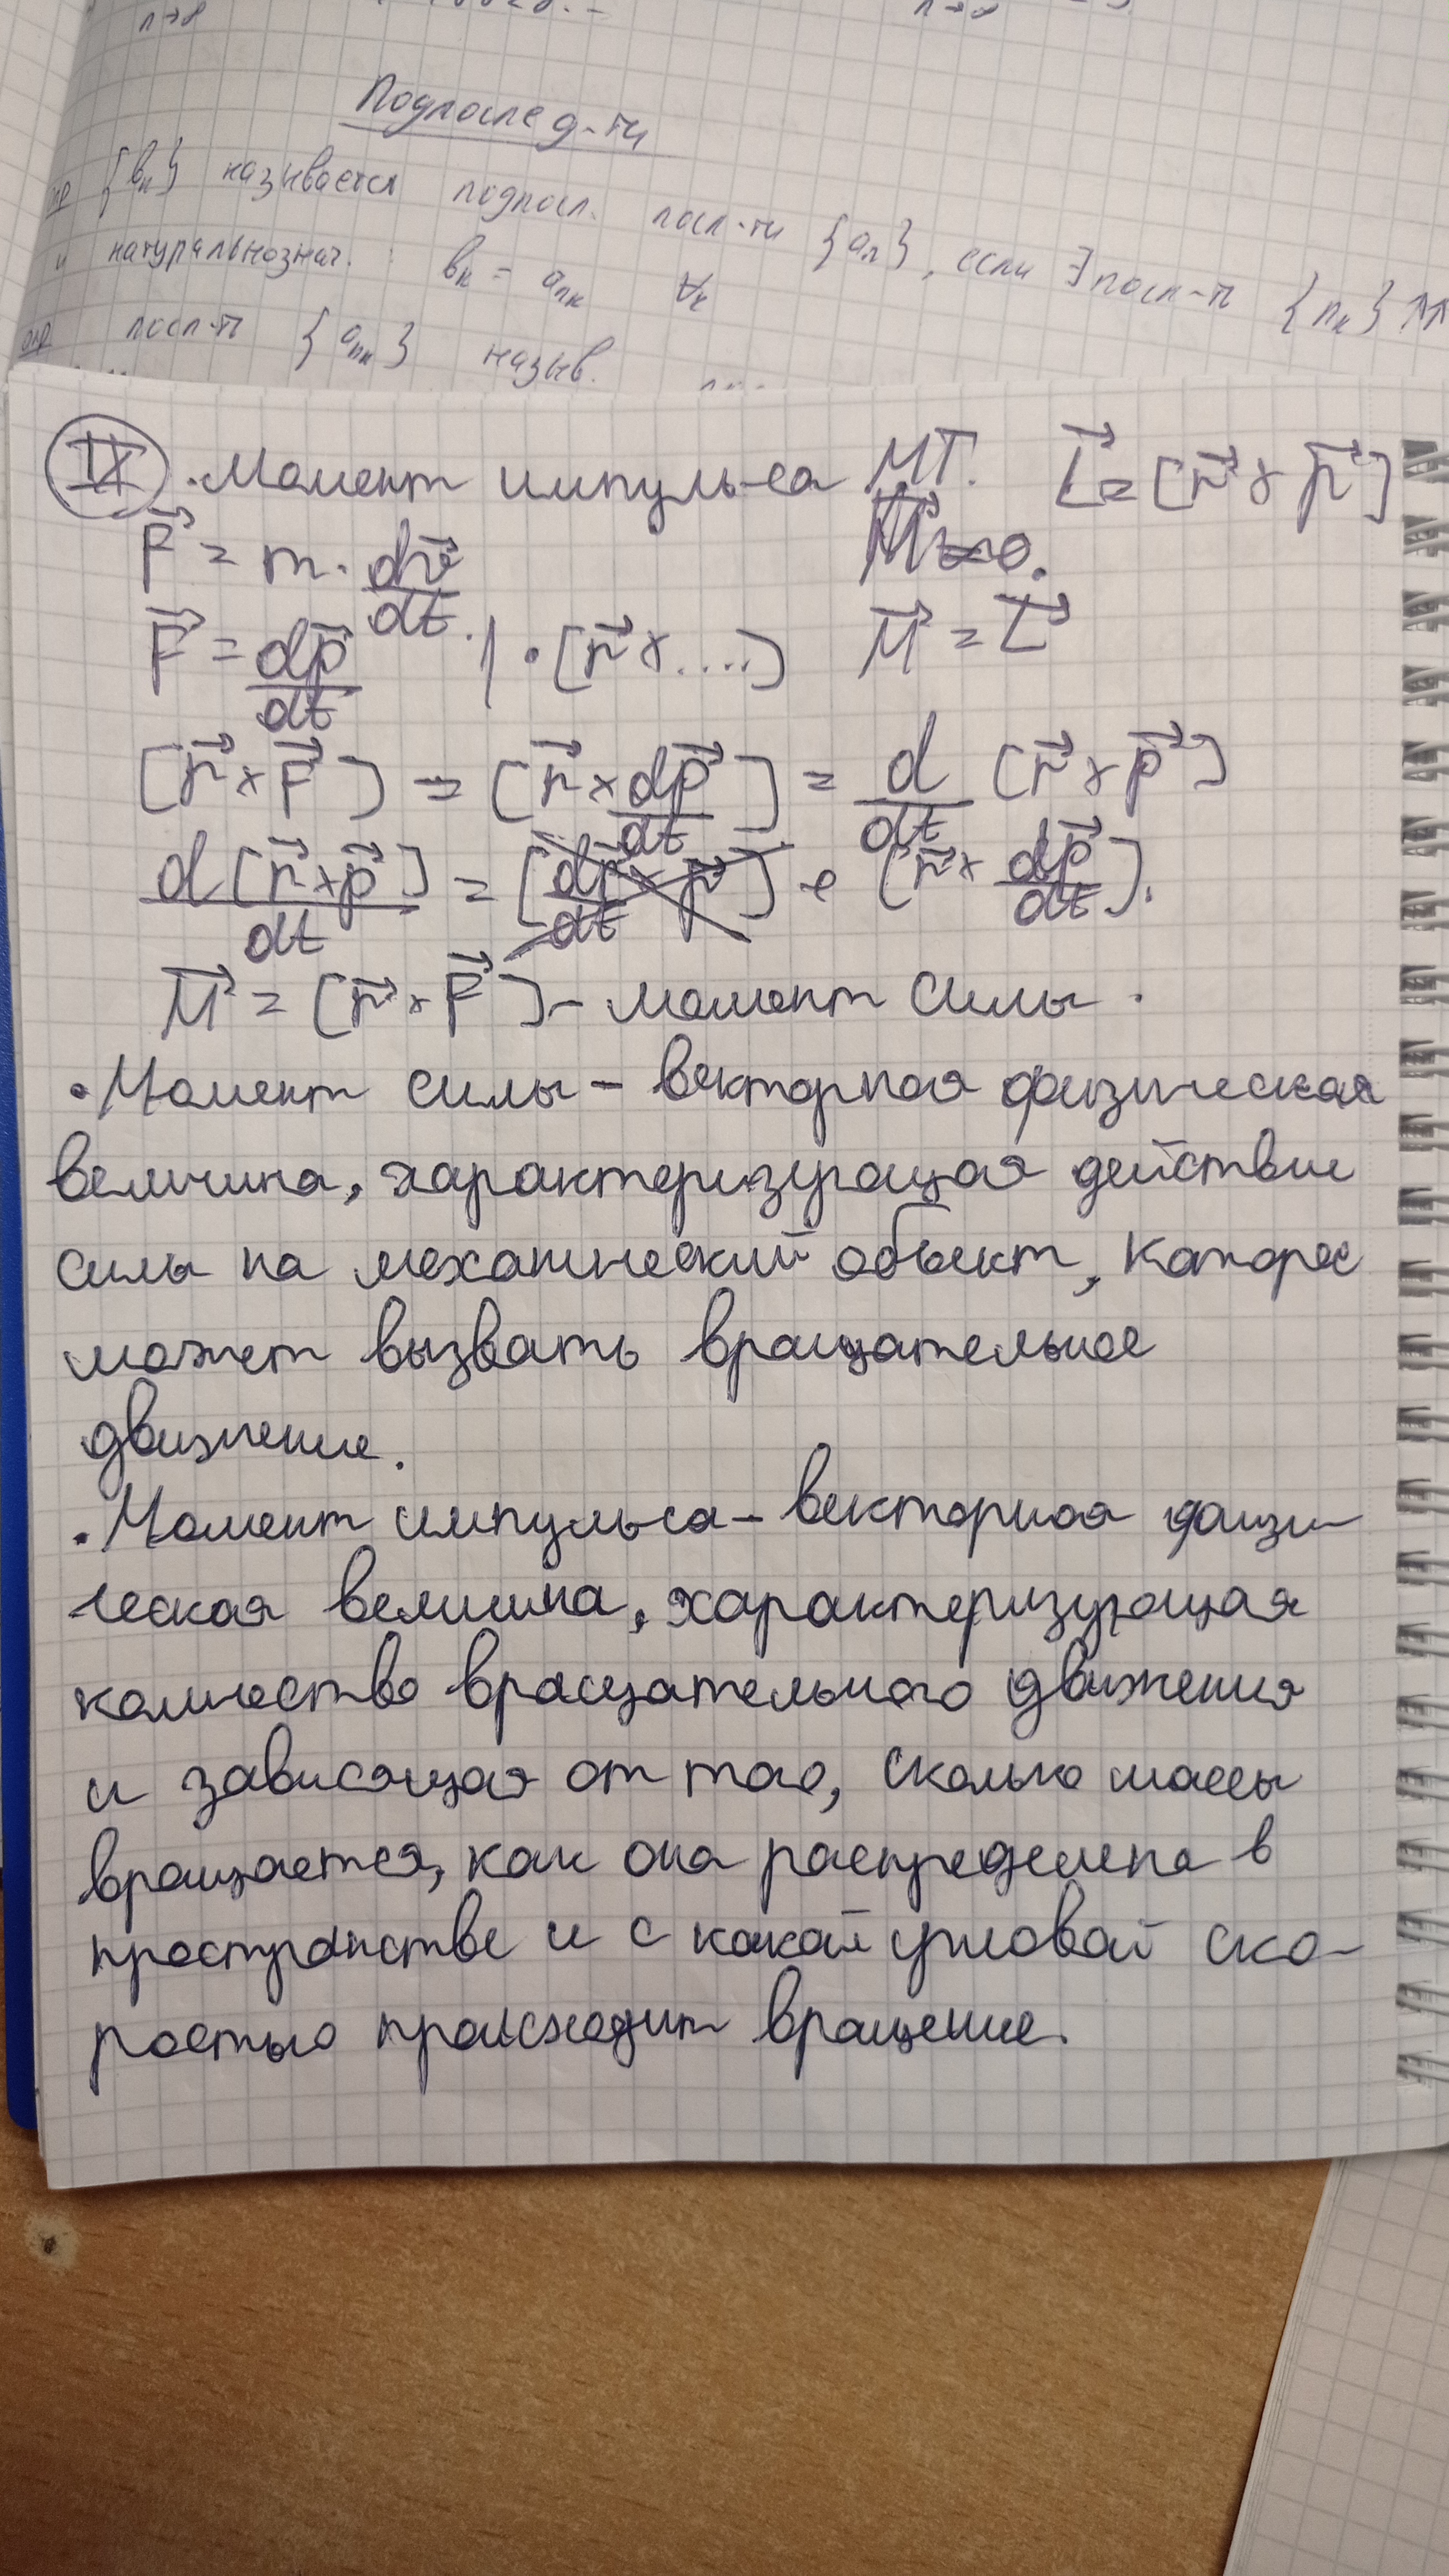 n→∞ n→∞
Подпослед-ти
опр {bₖ} называется подпосл. посл-ти {aₙ}, если ∃ посл-ть {nₖ} ↑↑
и натуральнознач. : bₖ = aₙₖ ∀ₖ
опр посл-ть {aₙₖ} назыв.
IX . Момент импульса МТ. L⃗ = [r⃗ × p⃗]
F⃗ = m · dv⃗/dt.
F⃗ = dp⃗/dt | · [r⃗ × ....] M⃗ = L⃗
[r⃗ × F⃗] = [r⃗ × dp⃗/dt] = d/dt [r⃗ × p⃗]
d[r⃗ × p⃗]/dt = [dr⃗/dt × p⃗] + [r⃗ × dp⃗/dt].
M⃗ = [r⃗ × F⃗] – момент силы.
• Момент силы – векторная физическая
величина, характеризующая действие
силы на механический объект, которое
может вызвать вращательное
движение.
• Момент импульса – векторная физи-
ческая величина, характеризующая
количество вращательного движения
и зависящая от того, сколько массы
вращается, как она распределена в
пространстве и с какой угловой ско-
ростью происходит вращение.